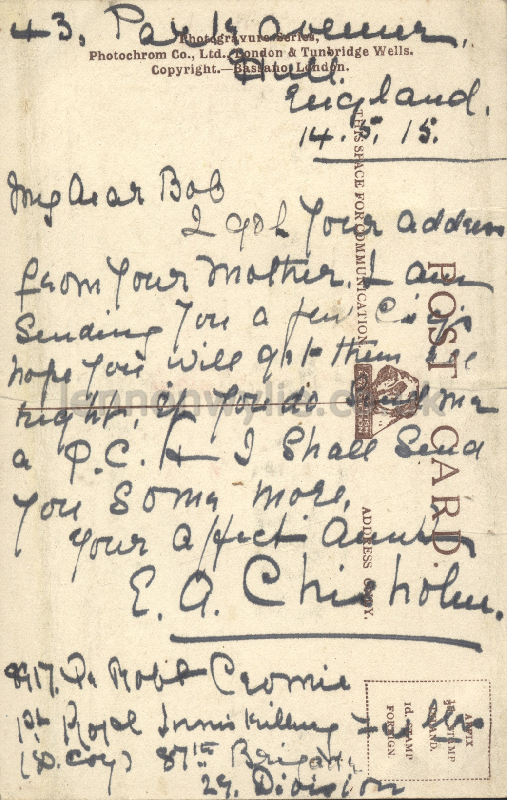 43, Park avenue,
Photogravure Series,
Photochrom Co., Ltd., London & Tunbridge Wells.
Copyright.—Bassano, London.
Hull
England.
14.5.15.
My dear Bob
I got your address
from your Mother. I am
sending you a few Cigs
hope you will get them all
right, if you do send me
a P.C. & I Shall Send
you some more,
your affect aunt
E. A. Chisholm.
8917. Pe Robt Cromie
1st Royal Inniskilling Fus
(D. Coy) 87th Brigade
29. Division
THIS SPACE FOR COMMUNICATION
POST CARD.
ADDRESS ONLY.
AFFIX
STAMP
INLAND.
1d. STAMP
FOREIGN.
lennonwylie.co.uk